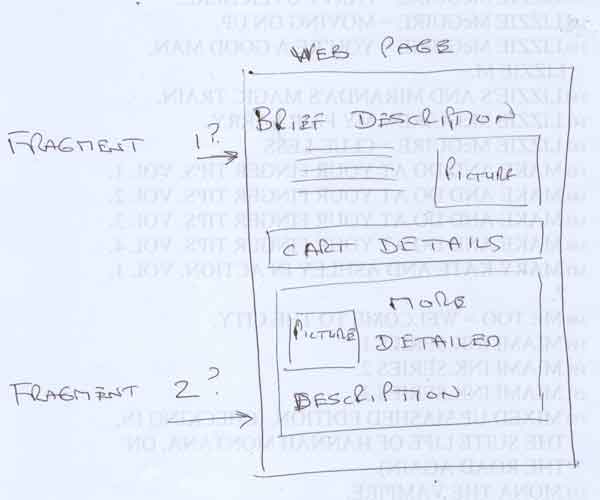 LIZZIE McGUIRE – MOVING ON UP.
A GOOD MAN.
WEB PAGE
LIZZIE M
LIZZIE'S AND MIRANDA'S MAGIC TRAIN.
BRIEF DESCRIPTION
FRAGMENT 1?
LIZZIE McGUIRE – CLUE LESS
PICTURE
MAKE AND DO AT YOUR FINGER TIPS. VOL. 1.
MAKE AND DO AT YOUR FINGER TIPS. VOL. 2.
MAKE AND DO AT YOUR FINGER TIPS. VOL. 3.
CART DETAILS
MAKE AND DO AT YOUR FINGER TIPS. VOL. 4.
MARY KATE AND ASHLEY IN ACTION. VOL. 1.
MORE
ME TOO – WELCOME TO THE CITY.
PICTURE
DETAILED
MIAMI INK
MIAMI INK SERIES 2.
FRAGMENT 2?
MIAMI INK
DESCRIPTION
MIXED UP MASHED EDITION CHECKING IN.
THE SUITE LIFE OF HANNAH MONTANA, ON
THE ROAD AGAIN)
MONA THE VAMPIRE.